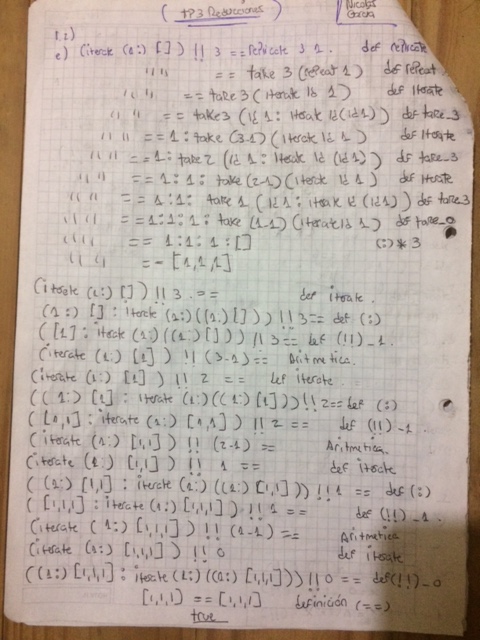 Nicolás García
(TP3 Reducciones)
1.i)
e) (iterate (1:) []) !! 3 == replicate 3 1. def replicate
" " == take 3 (repeat 1) def repeat
" " == take 3 (iterate id 1) def iterate
" " == take 3 (id 1 : iterate id (id 1)) def take_3
" " == 1 : take (3-1) (iterate id 1) def iterate
" " == 1 : take 2 (id 1 : iterate id (id 1)) def take_3
" " == 1 : 1 : take (2-1) (iterate id 1) def iterate
" " == 1:1: take 1 (id 1 : iterate id (id 1)) def take_3
" " == 1:1:1: take (1-1) (iterate id 1) def take_0
" " == 1:1:1:[] (:) * 3
" " == [1,1,1]
(iterate (1:) []) !! 3 == def iterate.
(1:) [] : iterate (1:) ((1:) [])) !! 3 == def (:)
([1] : iterate (1:) ((1:) [])) !! 3 == def (!!) -1.
(iterate (1:) [1]) !! (3-1) == Aritmetica.
(iterate (1:) [1]) !! 2 == def iterate.
((1:) [1] : iterate (1:) ((1:) [1])) !! 2 == def (:)
([1,1] : iterate (1:) [1,1]) !! 2 == def (!!) -1.
(iterate (1:) [1,1]) !! (2-1) == Aritmetica.
(iterate (1:) [1,1]) !! 1 == def iterate
((1:) [1,1] : iterate (1:) ((1:) [1,1])) !! 1 == def (:)
([1,1,1] : iterate (1:) [1,1,1]) !! 1 == def (!!) -1.
(iterate (1:) [1,1,1]) !! (1-1) == Aritmetica
(iterate (1:) [1,1,1]) !! 0 def iterate
((1:) [1,1,1] : iterate (1:) ((1:) [1,1,1])) !! 0 == def (!!) -0
[1,1,1] == [1,1,1] definición (==)
true